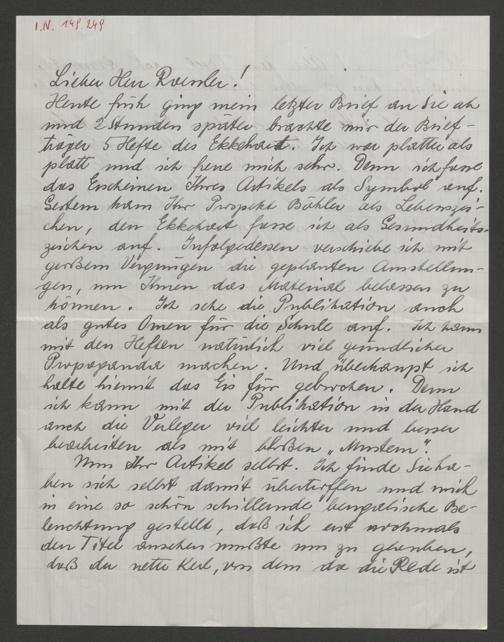 I.N. 149.249
Lieber Herr Roessler!
Heute früh ging mein letzter Brief an Sie ab
und 2 Stunden später brachte mir der Brief-
träger 5 Hefte des Ekkehart. Ich war platter als
platt und ich freue mich sehr. Denn ich fasse
das Erscheinen Ihres Artikels als Symbol auf.
Gestern kam Ihr Prospekt Böhler als Lebenszei-
chen, den Ekkehart fasse ich als Gesundheits-
zeichen auf. Infolgedessen verschiebe ich mit
großem Vergnügen die geplanten Ausstellun-
gen, um Ihnen das Material belassen zu
können. Ich sehe die Publikation auch
als gutes Omen für die Schule auf. Ich kann
mit den Heften natürlich viel gründlicher
Propaganda machen. Und überhaupt ich
halte hiemit das Eis für gebrochen. Denn
ich kann mit der Publikation in der Hand
auch die Verleger viel leichter und besser
bearbeiten als mit bloßen „Mustern".
Nun Ihr Artikel selbst. Ich finde Sie ha-
ben sich selbst damit übertroffen und mich
in eine so schön schillernde bengalische Be-
leuchtung gestellt, daß ich erst nochmals
den Titel ansehen mußte um zu glauben,
daß der nette Kerl, von dem da die Rede ist